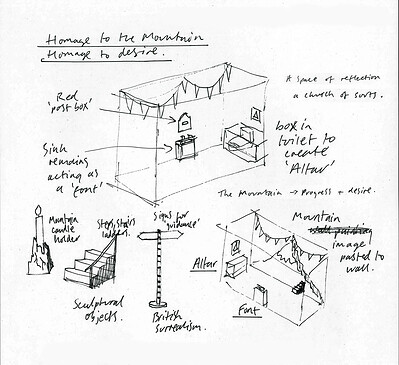 Homage to the Mountain
Homage to desire.
A space of reflection
a church of sorts.
Red
'post box'
Sink
remaining
acting as
a 'font'
box in
toilet to
create
'Altar'
The Mountain → Progress + desire.
Mountain
candle
holder
Steps, stairs
ladders.
Signs for
'guidance'
Sculptural
objects.
British
surrealism.
Mountain
wall painting
image
pasted to
wall.
Altar
Font